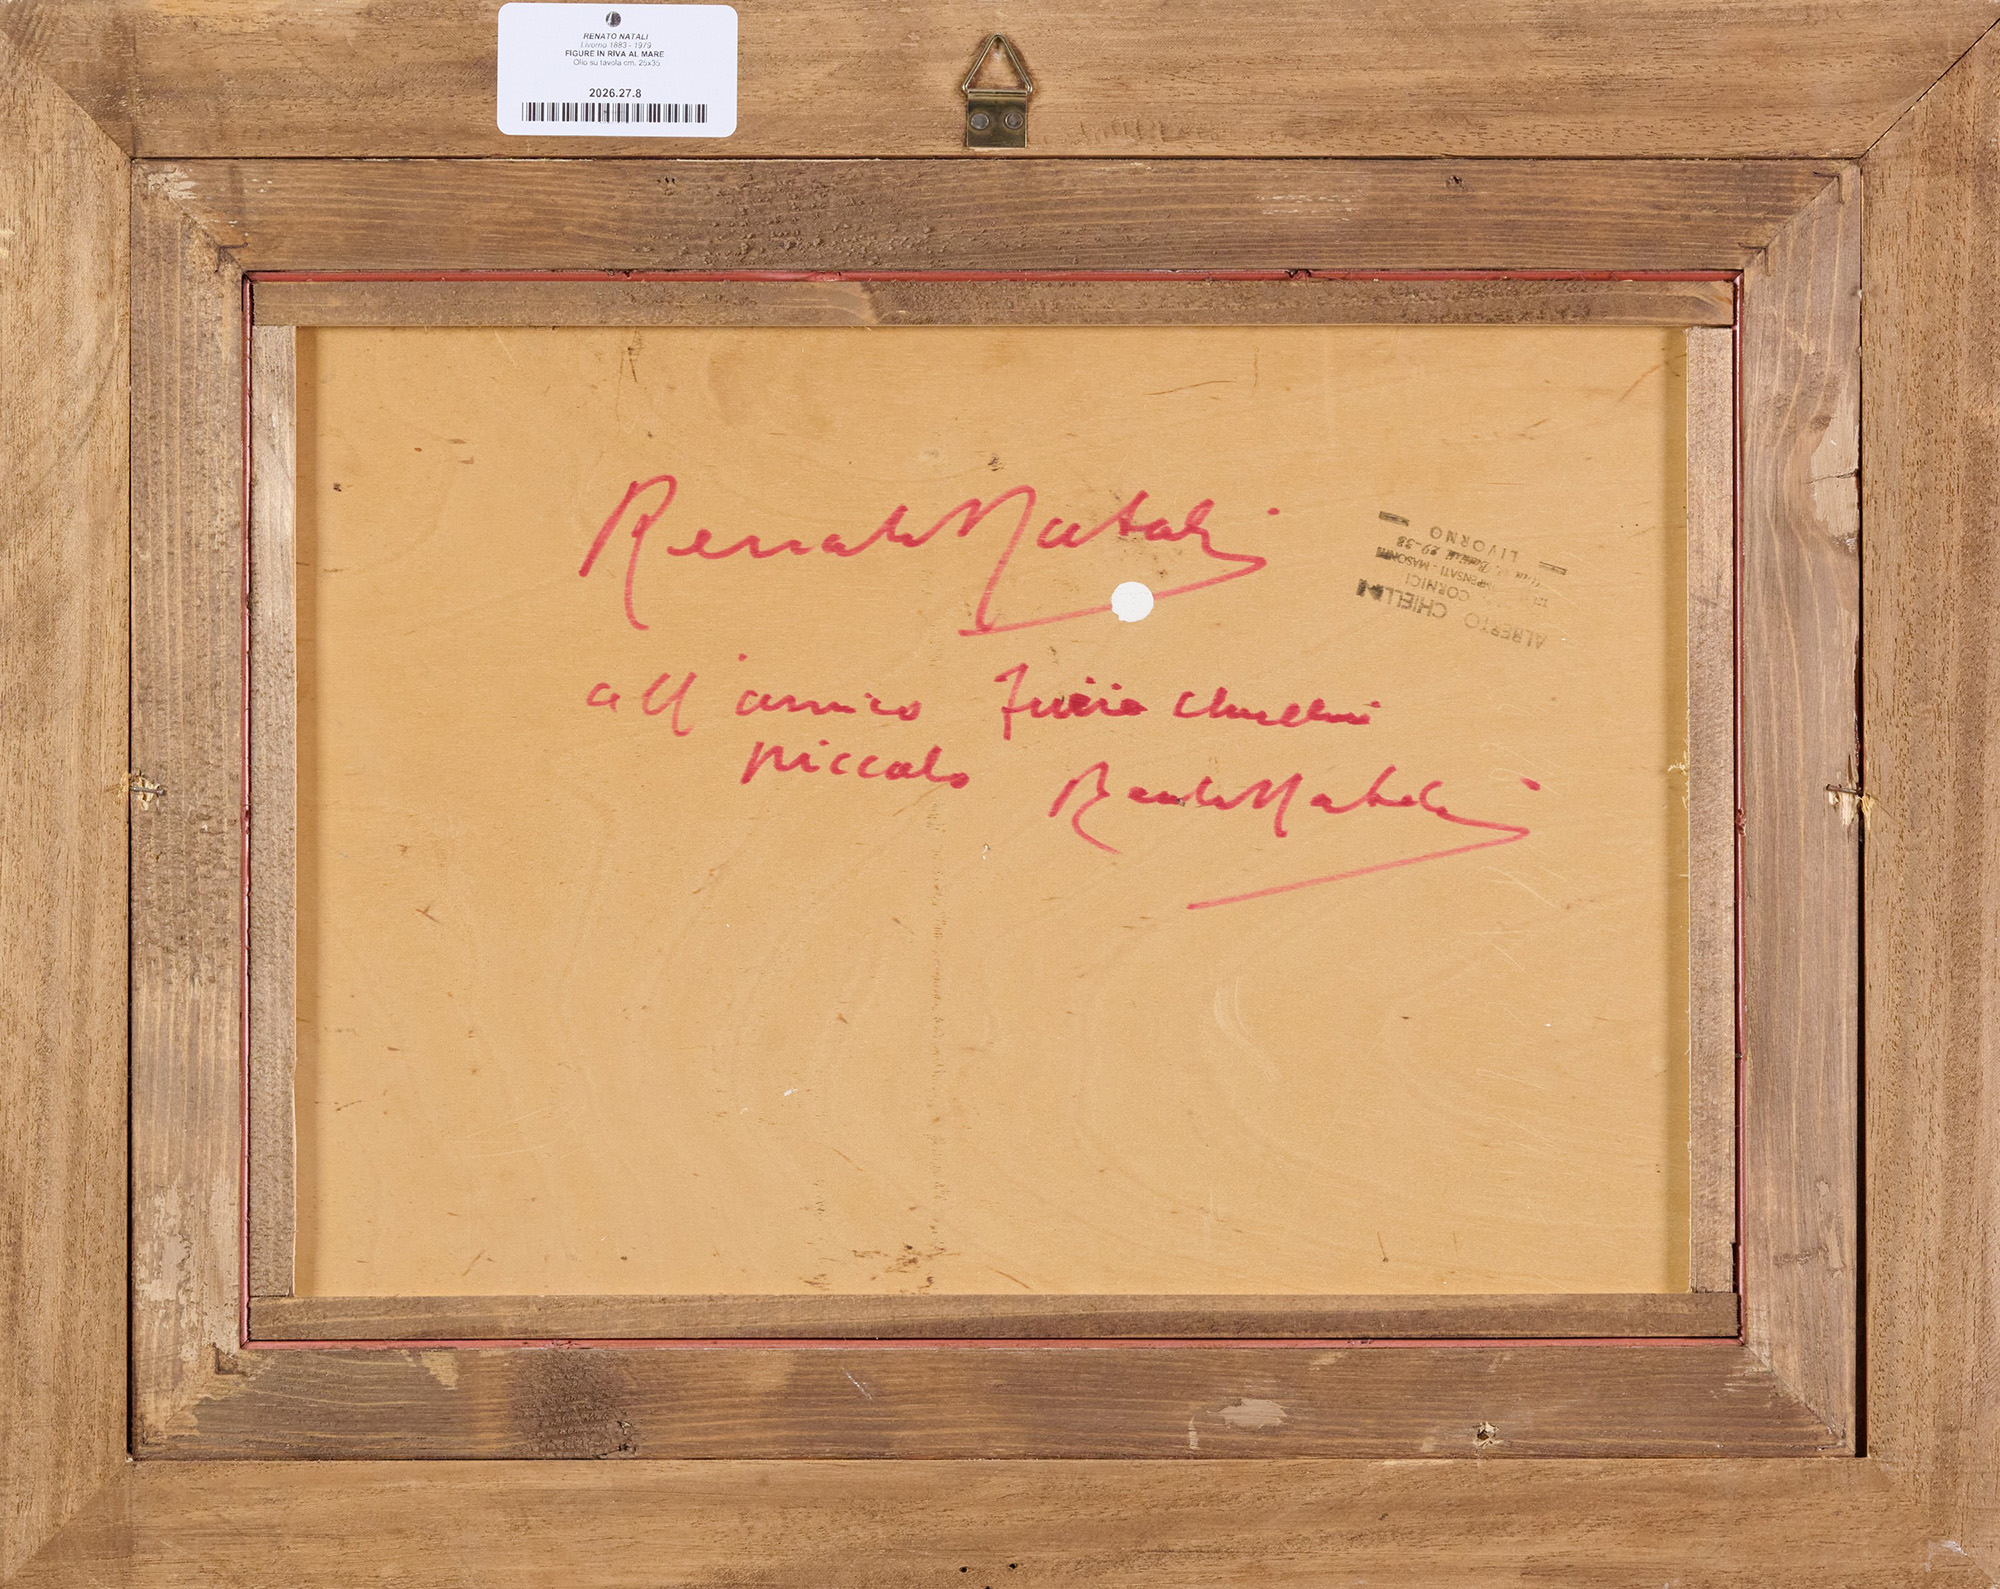 RENATO NATALI
Livorno 1883 - 1979
FIGURE IN RIVA AL MARE
Olio su tavola cm. 25x35
2026.27.8
Renato Natali
all'amico Furio Chiellini
piccolo Renato Natali
ALBERTO CHIELLINI
CORNICI
MASONITE
29-38
LIVORNO